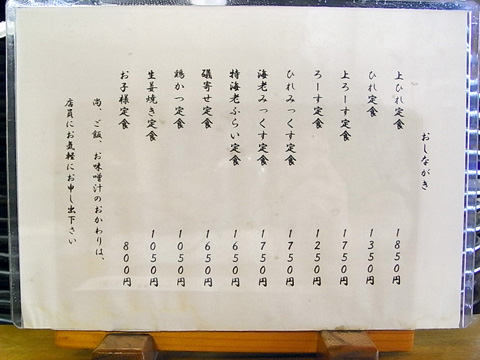 おしながき
上ひれ定食 1850円
ひれ定食 1350円
上ろーす定食 1750円
ろーす定食 1250円
ひれみっくす定食 1750円
海老みっくす定食 1750円
特海老ふらい定食 1650円
磯寄せ定食 1650円
鶏かつ定食 1050円
生姜焼き定食 1050円
お子様定食 800円
尚、ご飯、お味噌汁のおかわりは、
店員にお気軽にお申し出下さい